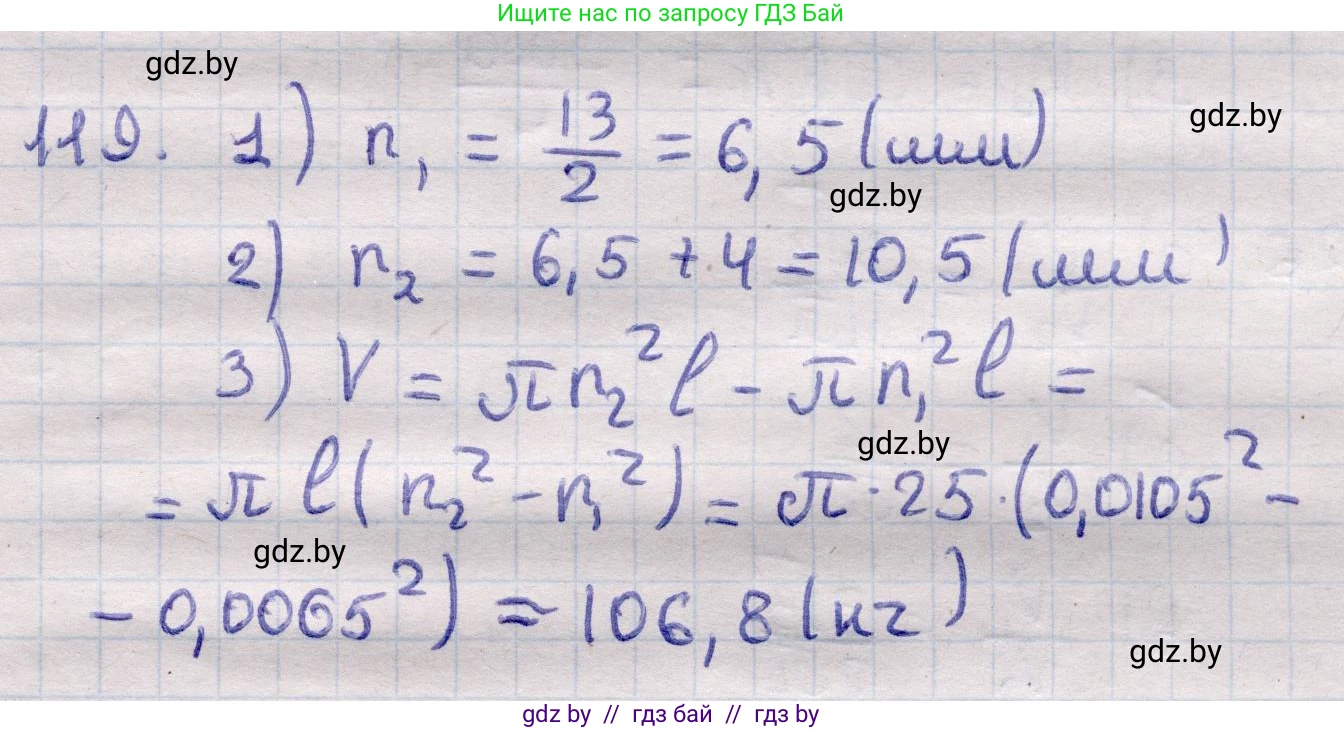 Ищите нас по запросу ГДЗ Бай
gdz.by
119. 1) r₁ = 13/2 = 6,5 (мм)
gdz.by
gdz.by
2) r₂ = 6,5 + 4 = 10,5 (мм)
3) V = πr₂²l - πr₁²l =
gdz.by
= πl(r₂² - r₁²) = π·25·(0,0105² -
gdz.by
- 0,0065²) ≈ 106,8 (кг)
gdz.by
gdz by // гдз бай // гдз by